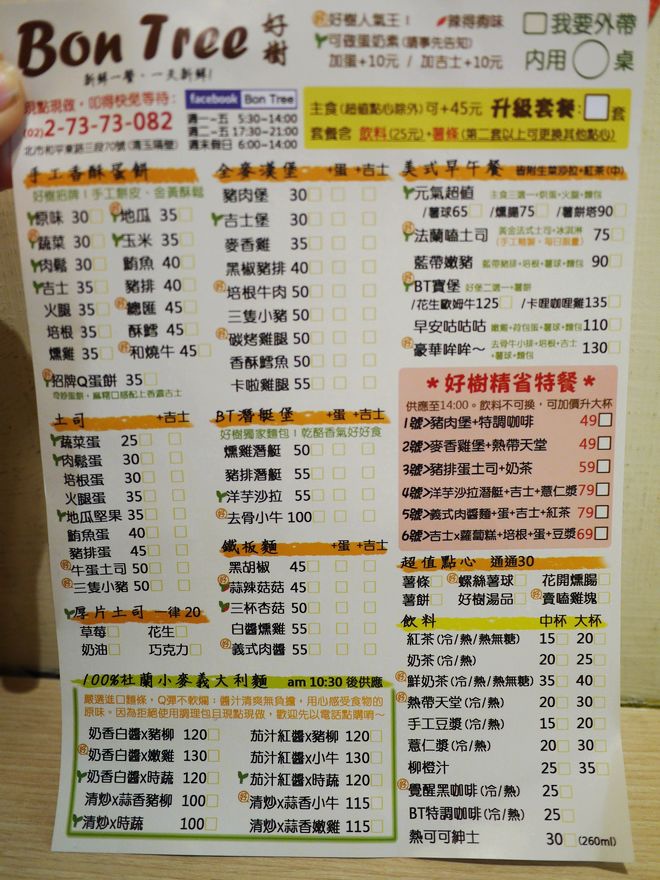 Bon Tree 好樹
新鮮一餐，一天新鮮！
好樹人氣王！ 辣得夠味
可做蛋奶素（請事先告知）
加蛋+10元 / 加吉士+10元
我要外帶
內用 桌
現點現做，叩得快免等待：
(02)2-73-73-082
北市和平東路三段70號
facebook Bon Tree
週一~五 5:30~14:00
週二~五 17:30~21:00
週末假日 6:00~14:00
主食(超值點心除外)可+45元 升級套餐： 套
套餐含 飲料(25元)+薯條(第二套以上可更換其他點心)
手工香酥蛋餅
好樹招牌！手工餅皮、金黃酥鬆
原味 30 地瓜 35
蔬菜 30 玉米 35
肉鬆 30 鮪魚 40
吉士 35 豬排 40
火腿 35 總匯 45
培根 35 酥鱈 45
燻雞 35 和燒牛 45
招牌Q蛋餅 35
土司 +吉士
蔬菜蛋 25
肉鬆蛋 30
培根蛋 30
火腿蛋 35
地瓜堅果 35
鮪魚蛋 40
豬排蛋 45
牛蛋土司 50
三隻小豬 50
厚片土司 一律20
草莓 花生
奶油 巧克力
全麥漢堡 +蛋 +吉士
豬肉堡 30
吉士堡 30
麥香雞 35
黑椒豬排 40
培根牛肉 50
三隻小豬 50
碳烤雞腿 50
香酥鱈魚 50
卡啦雞腿 55
BT潛艇堡 +蛋 +吉士
好樹獨家麵包！乾酪香氣好好食
燻雞潛艇 50
豬排潛艇 55
洋芋沙拉 55
去骨小牛 100
鐵板麵 +蛋 +吉士
黑胡椒 45
蒜辣菇菇 45
三杯杏菇 50
白醬燻雞 55
義式肉醬 55
美式早午餐 皆附生菜沙拉+紅茶(中)
元氣超值 主食三選一+炒蛋+火腿+麵包
/薯球65 /燻腸75 /薯餅塔90
法蘭嗑土司 黃金法式土司+冰淇淋 75
(手工麵製，每日限量)
藍帶嫩豬 藍帶豬排+培根+薯球+麵包 90
BT寶堡 好堡二選一+薯餅
/花生歐姆牛125 /卡哩咖哩雞135
早安咕咕咕 嫩雞+荷包蛋+薯球+麵包 110
豪華哞哞~ 去骨牛小排+培根+吉士+薯球+麵包 130
*好樹精省特餐*
供應至14:00。飲料不可換，可加價升大杯
1號>豬肉堡+特調咖啡 49
2號>麥香雞堡+熱帶天堂 49
3號>豬排蛋土司+奶茶 59
4號>洋芋沙拉潛艇+吉士+薏仁漿 79
5號>義式肉醬麵+蛋+吉士+紅茶 79
6號>吉士x蘿蔔糕+培根+蛋+豆漿 69
超值點心 通通30
薯條 螺絲薯球 花開燻腸
薯餅 好樹湯品 賣嗑雞塊
飲料 中杯 大杯
紅茶(冷/熱/熱無糖) 15 20
奶茶(冷/熱) 20 25
鮮奶茶(冷/熱/熱無糖) 35 40
熱帶天堂(冷/熱) 20 30
手工豆漿(冷/熱) 15 20
薏仁漿(冷/熱) 20 30
柳橙汁 25 35
覺醒黑咖啡(冷/熱) 25
BT特調咖啡(冷/熱) 25
熱可可紳士 30 (260ml)
100%杜蘭小麥義大利麵 am 10:30 後供應
嚴選進口麵條，Q彈不軟爛；醬汁清爽無負擔，用心感受食物的
原味。因為拒絕使用調理包且現點現做，歡迎先以電話點購唷~
奶香白醬x豬柳 120 茄汁紅醬x豬柳 120
奶香白醬x嫩雞 130 茄汁紅醬x小牛 130
奶香白醬x時蔬 120 茄汁紅醬x時蔬 120
清炒x蒜香豬柳 100 清炒x蒜香小牛 115
清炒x時蔬 100 清炒x蒜香嫩雞 115